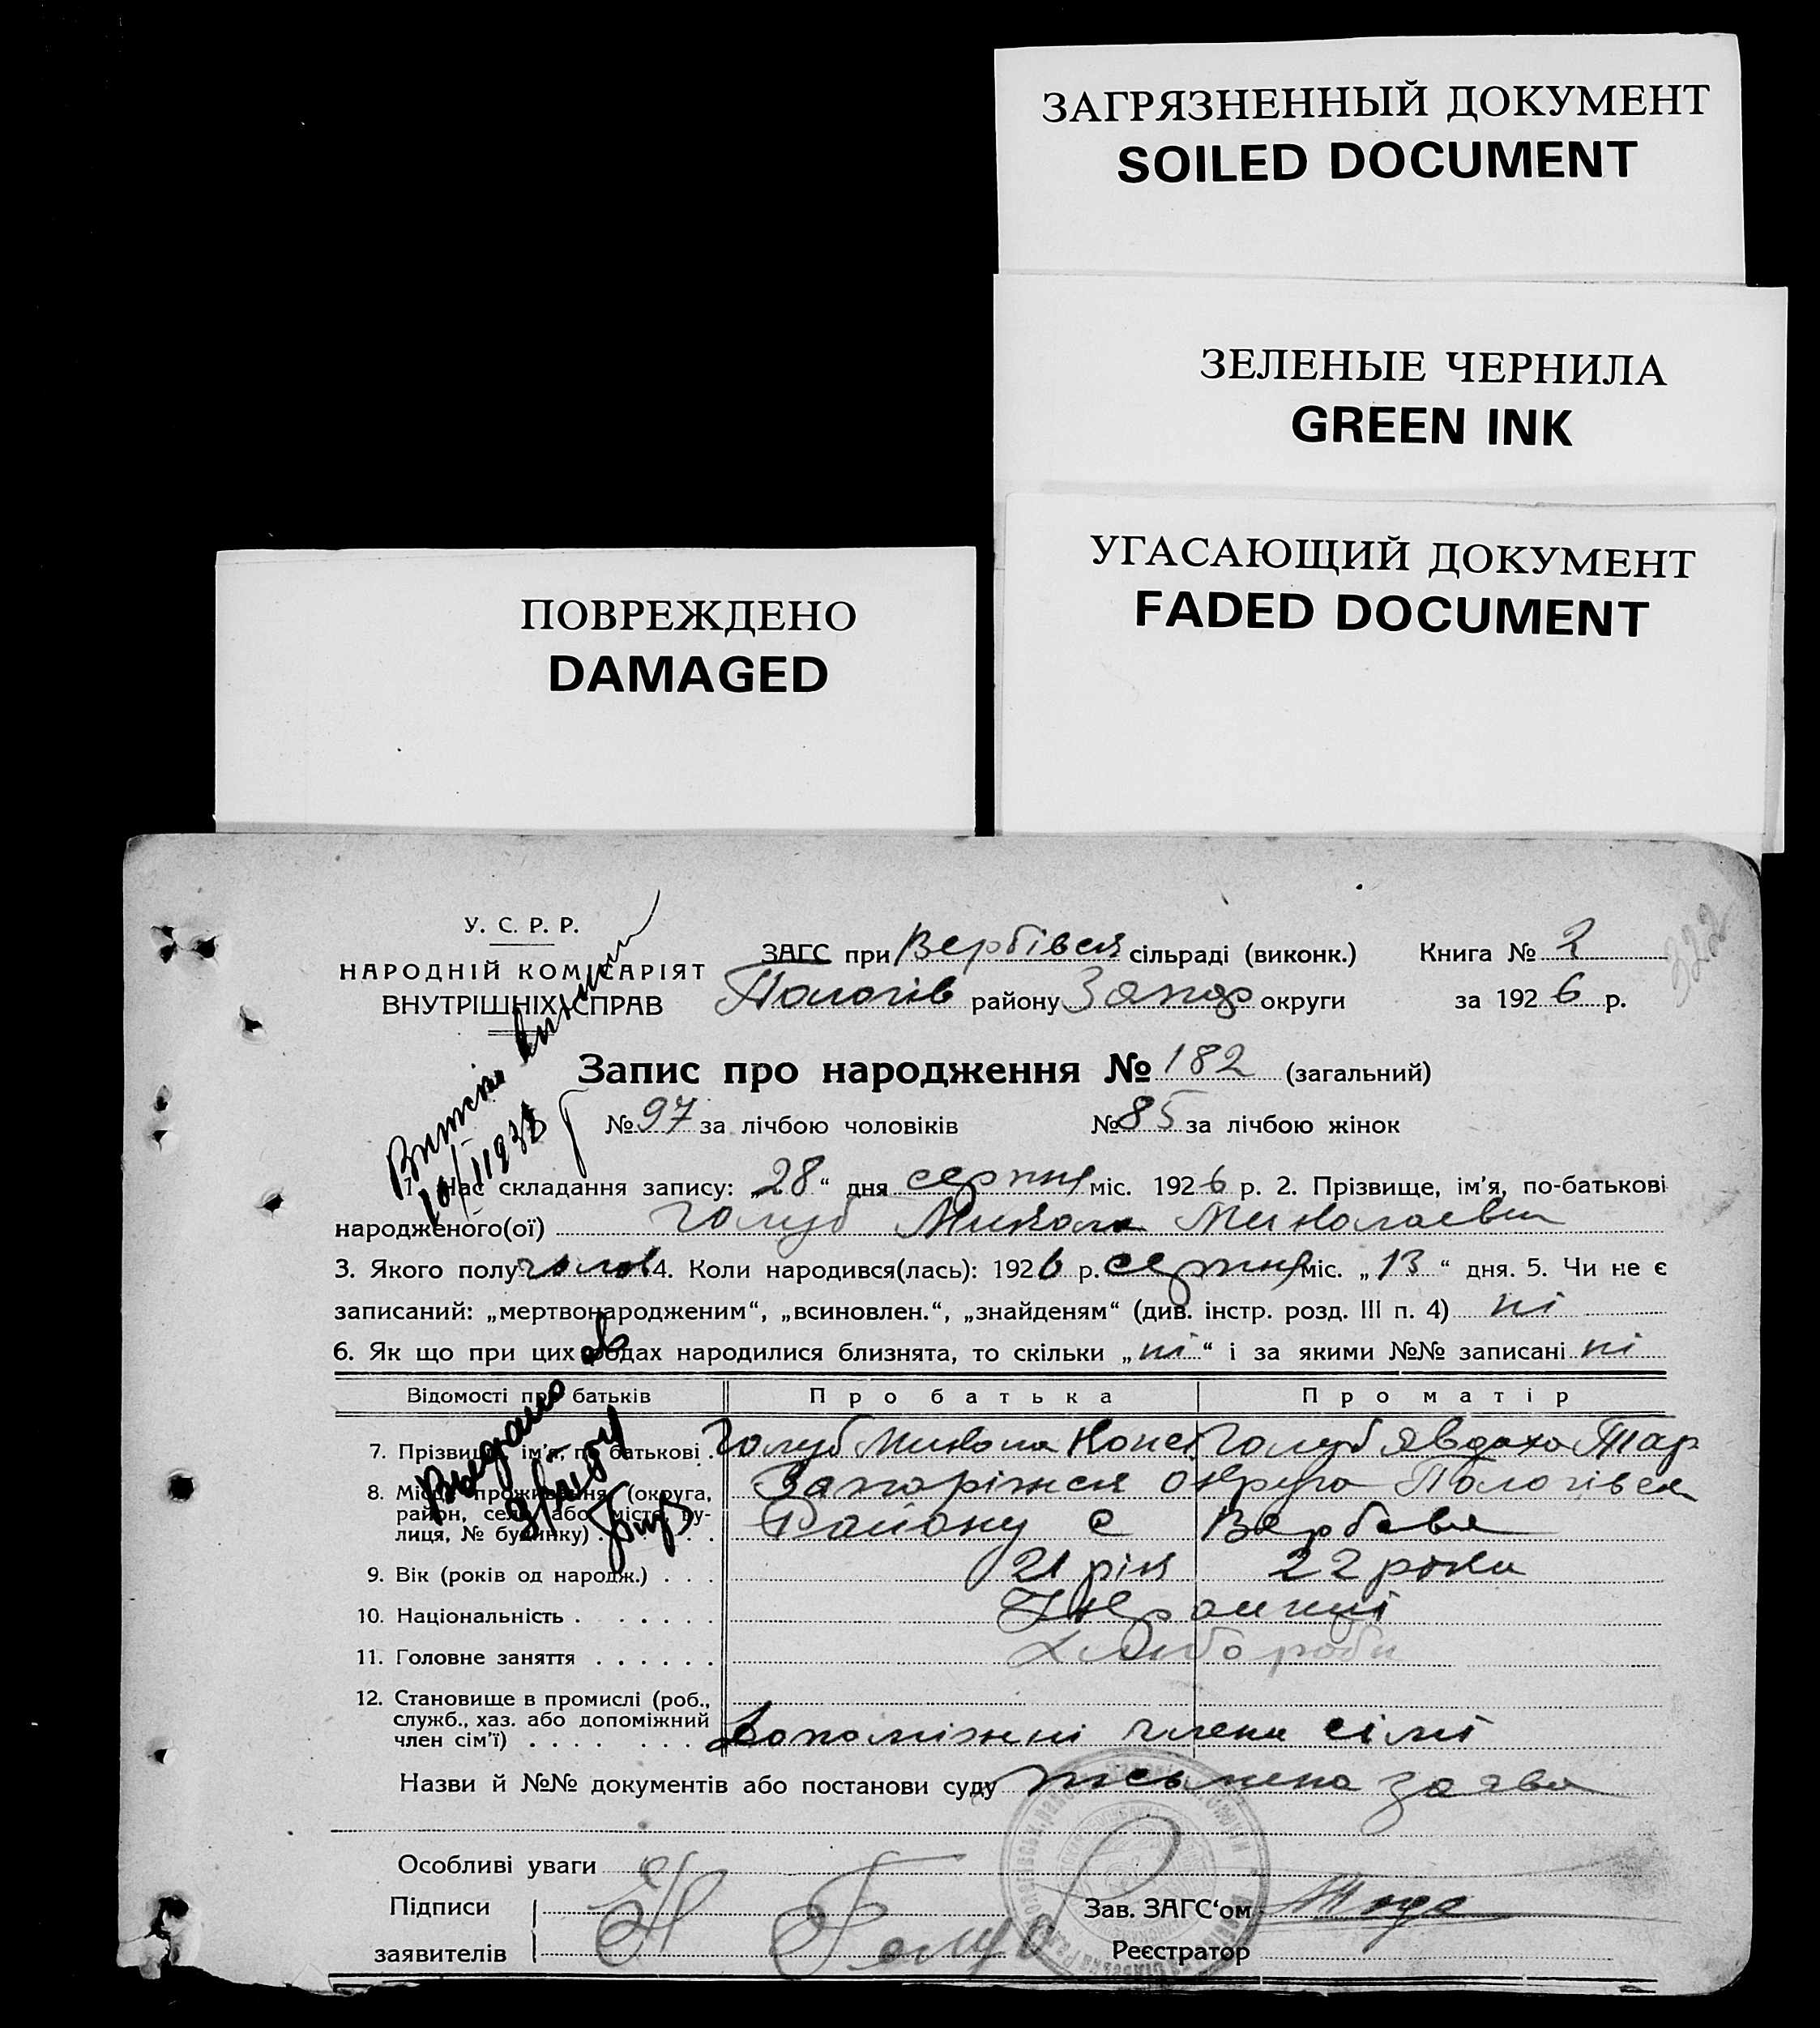 ЗАГРЯЗНЕННЫЙ ДОКУМЕНТ
SOILED DOCUMENT
ЗЕЛЕНЫЕ ЧЕРНИЛА
GREEN INK
УГАСАЮЩИЙ ДОКУМЕНТ
FADED DOCUMENT
ПОВРЕЖДЕНО
DAMAGED
322
У. С. Р. Р.
НАРОДНІЙ КОМІСАРІЯТ
ВНУТРІШНІХ СПРАВ
ЗАГС при Вербівськ сільраді (виконк.) Книга № 2
Пологів району Запор округи за 1926 р.
Запис про народження № 182 (загальний)
№ 97 за лічбою чоловіків № 85 за лічбою жінок
1. Час складання запису: „28“ дня серпня міс. 1926 р. 2. Прізвище, ім’я, по-батькові
народженого(ої) Голуб Микола Миколаевич
3. Якого полу чолов 4. Коли народився(лась): 1926 р. серпня міс. „13“ дня. 5. Чи не є
записаний: „мертвонародженим“, „всиновлен.“, „знайденям“ (див. інстр. розд. III п. 4) ні
6. Як що при цих родах народилися близнята, то скільки „ні“ і за якими №№ записані ні
Відомості про батьків Про батька Про матір
7. Прізвище, ім’я, по батькові . Голуб Микола Конст Голуб Явдоха Тар
8. Місце проживання (округа, район, село або місто, вулиця, № будинку) Запоріжськ округа Пологівськ
Району с Вербове
9. Вік (років од народж.) . . . 21 рік 22 роки
10. Національність . . . . . . Українці
11. Головне заняття . . . . . . Хлібороби
12. Становище в промислі (роб.,
служб., хаз. або допоміжний
член сім’ї) . . . . . . . . Допоміжні члени сімї
Назви й №№ документів або постанови суду письмена заява
Особливі уваги
Підписи
заявителів Н Голуб
Зав. ЗАГС‘ом
Реєстратор
Видано